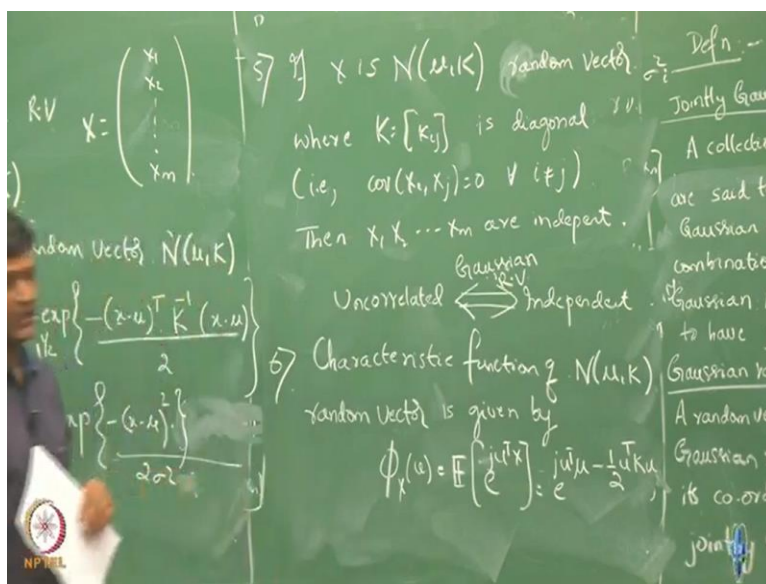 R.V X = ( x1
x2
⋮
xm )
random vector N(μ,K)
exp{ -(x-μ)^T K^-1 (x-μ) / 2 }
exp{ -(x-μ)^2 / 2σ2 }
5) If X is N(μ,K) random vector
where K=[Kij] is diagonal
(i.e, cov(xi,xj)=0 ∀ i≠j)
Then x1 x2 ... xm are indepent.
Gaussian
R.V
Uncorrelated ⟺ Independent
6) Characteristic function of N(μ,K)
random vector is given by
Φx(u) = E[e^{ju^T x}] = e^{ju^T μ - 1/2 u^T K u}
σi^2
r.v.
Defn:-
Jointly Gau
A collecti
are said t
Gaussian
combinatio
Gaussian
to have
Gaussian
A random ve
Gaussian
its co-or
jointly
NPTEL